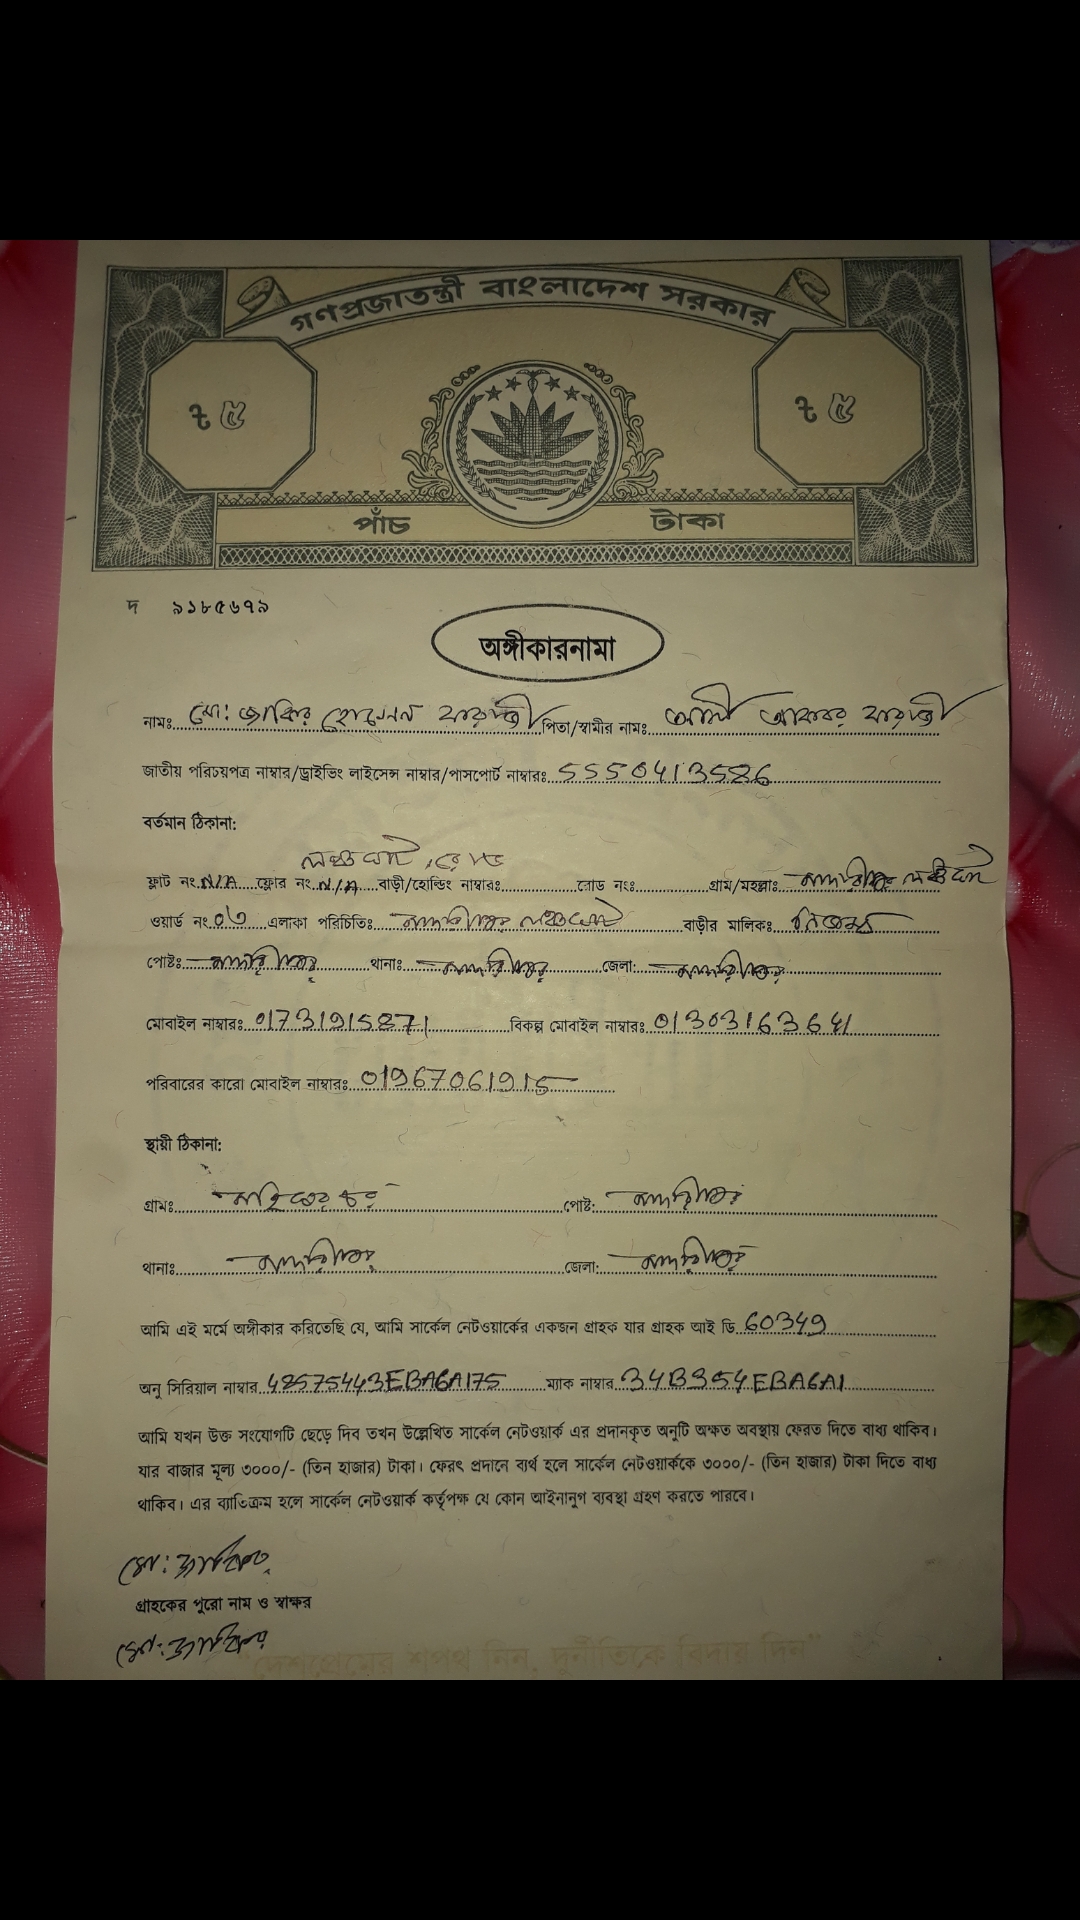 গণপ্রজাতন্ত্রী বাংলাদেশ সরকার
৳ ৫ ৳ ৫
পাঁচ টাকা
দ ৯১৮৫৬৭৯
অঙ্গীকারনামা
নামঃ মো: জাকির হোসেন ফরাজী পিতা/স্বামীর নামঃ আলী আকবর ফরাজী
জাতীয় পরিচয়পত্র নাম্বার/ড্রাইভিং লাইসেন্স নাম্বার/পাসপোর্ট নাম্বারঃ 5550413586
বর্তমান ঠিকানা:
লঞ্চঘাট রোড
ফ্লাট নং N/A ফ্লোর নং N/A বাড়ী/হোল্ডিং নাম্বারঃ রোড নংঃ গ্রাম/মহল্লাঃ মাদারীপুর লঞ্চঘাট
ওয়ার্ড নং ০৩ এলাকা পরিচিতিঃ মাদারীপুর লঞ্চঘাট বাড়ীর মালিকঃ নিজস্ব
পোষ্টঃ মাদারীপুর থানাঃ মাদারীপুর জেলা: মাদারীপুর
মোবাইল নাম্বারঃ 01731915871 বিকল্প মোবাইল নাম্বারঃ 01303163641
পরিবারের কারো মোবাইল নাম্বারঃ 01967061915
স্থায়ী ঠিকানা:
গ্রামঃ পোষ্ট: মাদারীপুর
থানাঃ মাদারীপুর জেলা: মাদারীপুর
আমি এই মর্মে অঙ্গীকার করিতেছি যে, আমি সার্কেল নেটওয়ার্কের একজন গ্রাহক যার গ্রাহক আই ডি 60349
অনু সিরিয়াল নাম্বার 48575443EBA6A175 ম্যাক নাম্বার 34B354EBA6A1
আমি যখন উক্ত সংযোগটি ছেড়ে দিব তখন উল্লেখিত সার্কেল নেটওয়ার্ক এর প্রদানকৃত অনুটি অক্ষত অবস্থায় ফেরত দিতে বাধ্য থাকিব।
যার বাজার মূল্য ৩০০০/- (তিন হাজার) টাকা। ফেরৎ প্রদানে ব্যর্থ হলে সার্কেল নেটওয়ার্ককে ৩০০০/- (তিন হাজার) টাকা দিতে বাধ্য
থাকিব। এর ব্যাতিক্রম হলে সার্কেল নেটওয়ার্ক কর্তৃপক্ষ যে কোন আইনানুগ ব্যবস্থা গ্রহণ করতে পারবে।
মো: জাকির
গ্রাহকের পুরো নাম ও স্বাক্ষর
মো: জাকির
"দেশপ্রেমের শপথ নিন, দুর্নীতিকে বিদায় দিন"